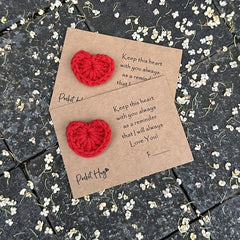 Pocket Hug
Keep this heart
with you always
as a reminder
that I will always
Love You!
Pocket Hug
Keep this heart
with you always
as a reminder
that I will always
Love You!